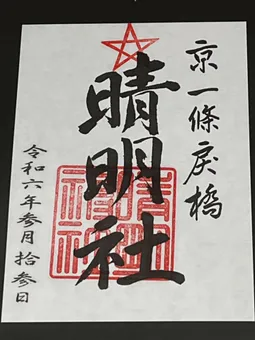 京一條戻橋
晴明社
令和六年参月拾参日